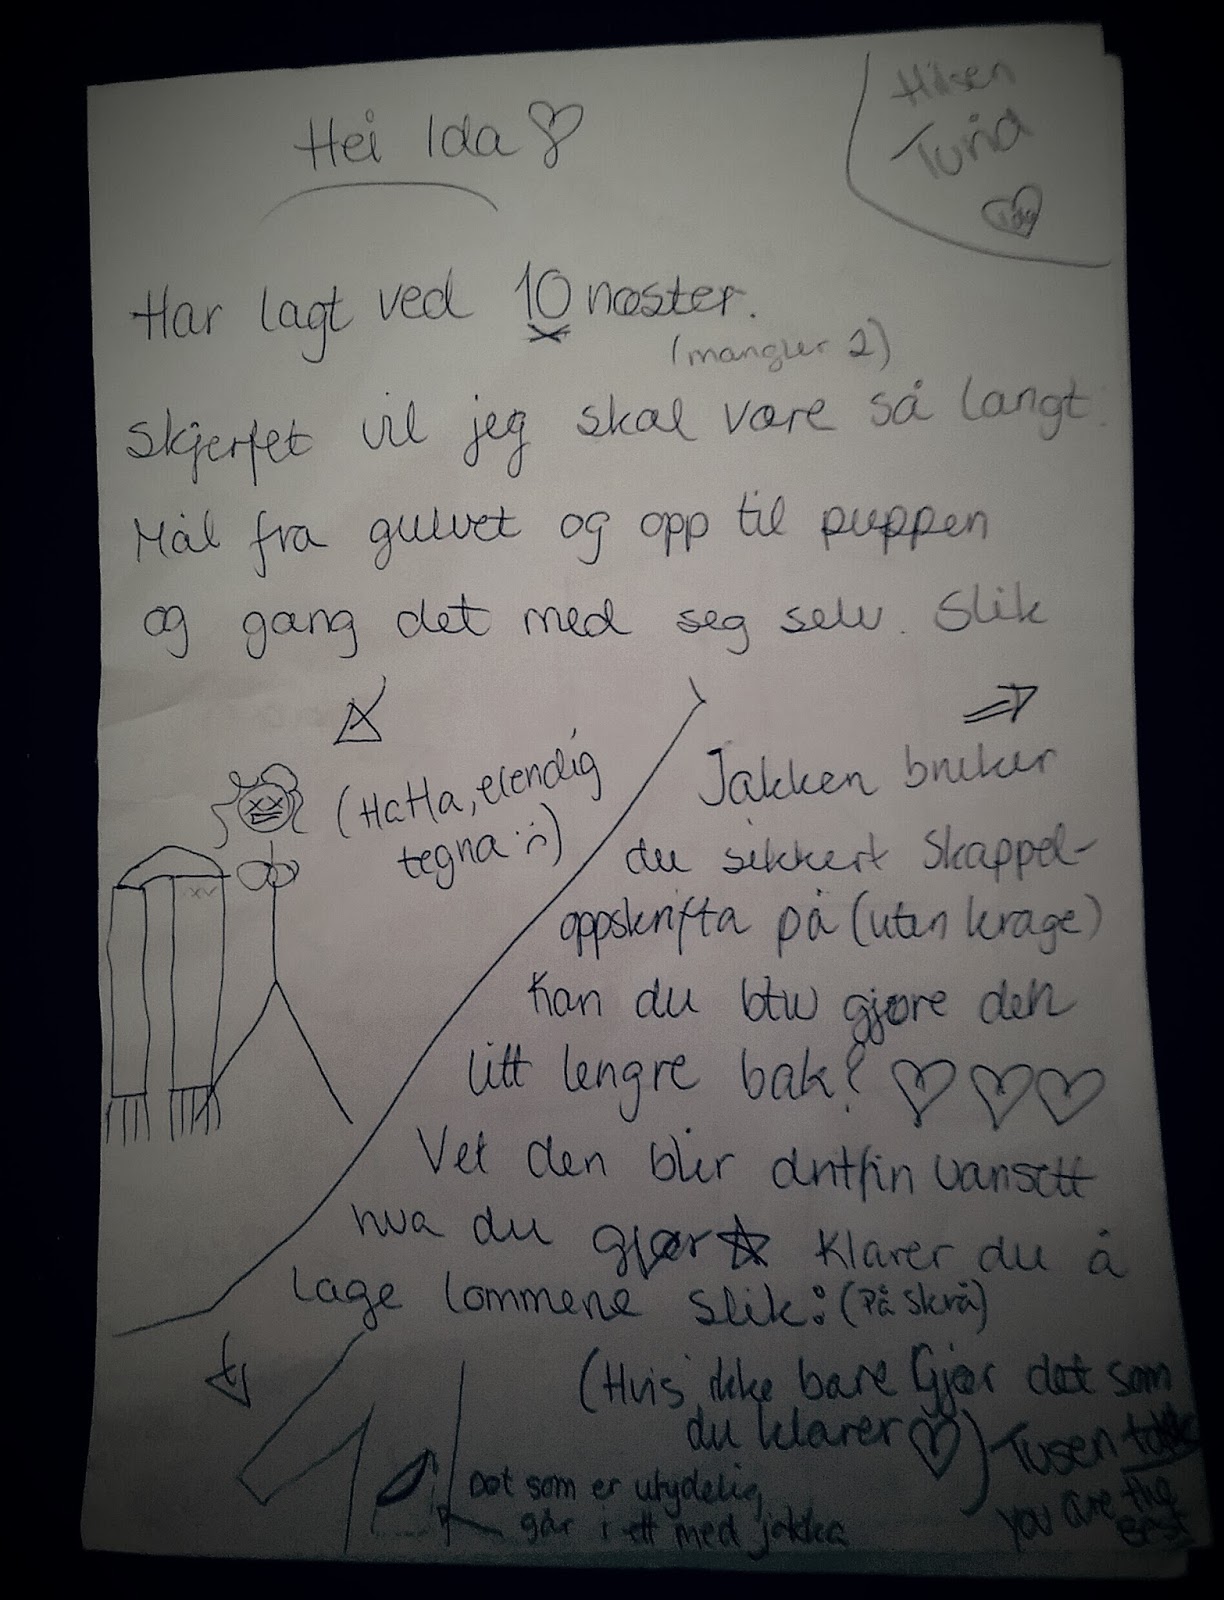 Hei Ida
Hilsen
Turid
Har lagt ved 10 nøster.
(mangler 2)
Skjerfet vil jeg skal være så langt:
Mål fra gulvet og opp til puppen
og gang det med seg selv. Slik
(HaHa, elendig
tegna :))
Jakken bruker
du sikkert Skappel-
oppskrifta på (uten krage)
Kan du btw gjøre den
litt lengre bak?
Vet den blir dritfin uansett
hva du gjør Klarer du å
lage lommene slik: (På skrå)
(Hvis ikke bare Gjør det som
du klarer)
Det som er utydelig
går i ett med jakka
Tusen takk
you are the
Best